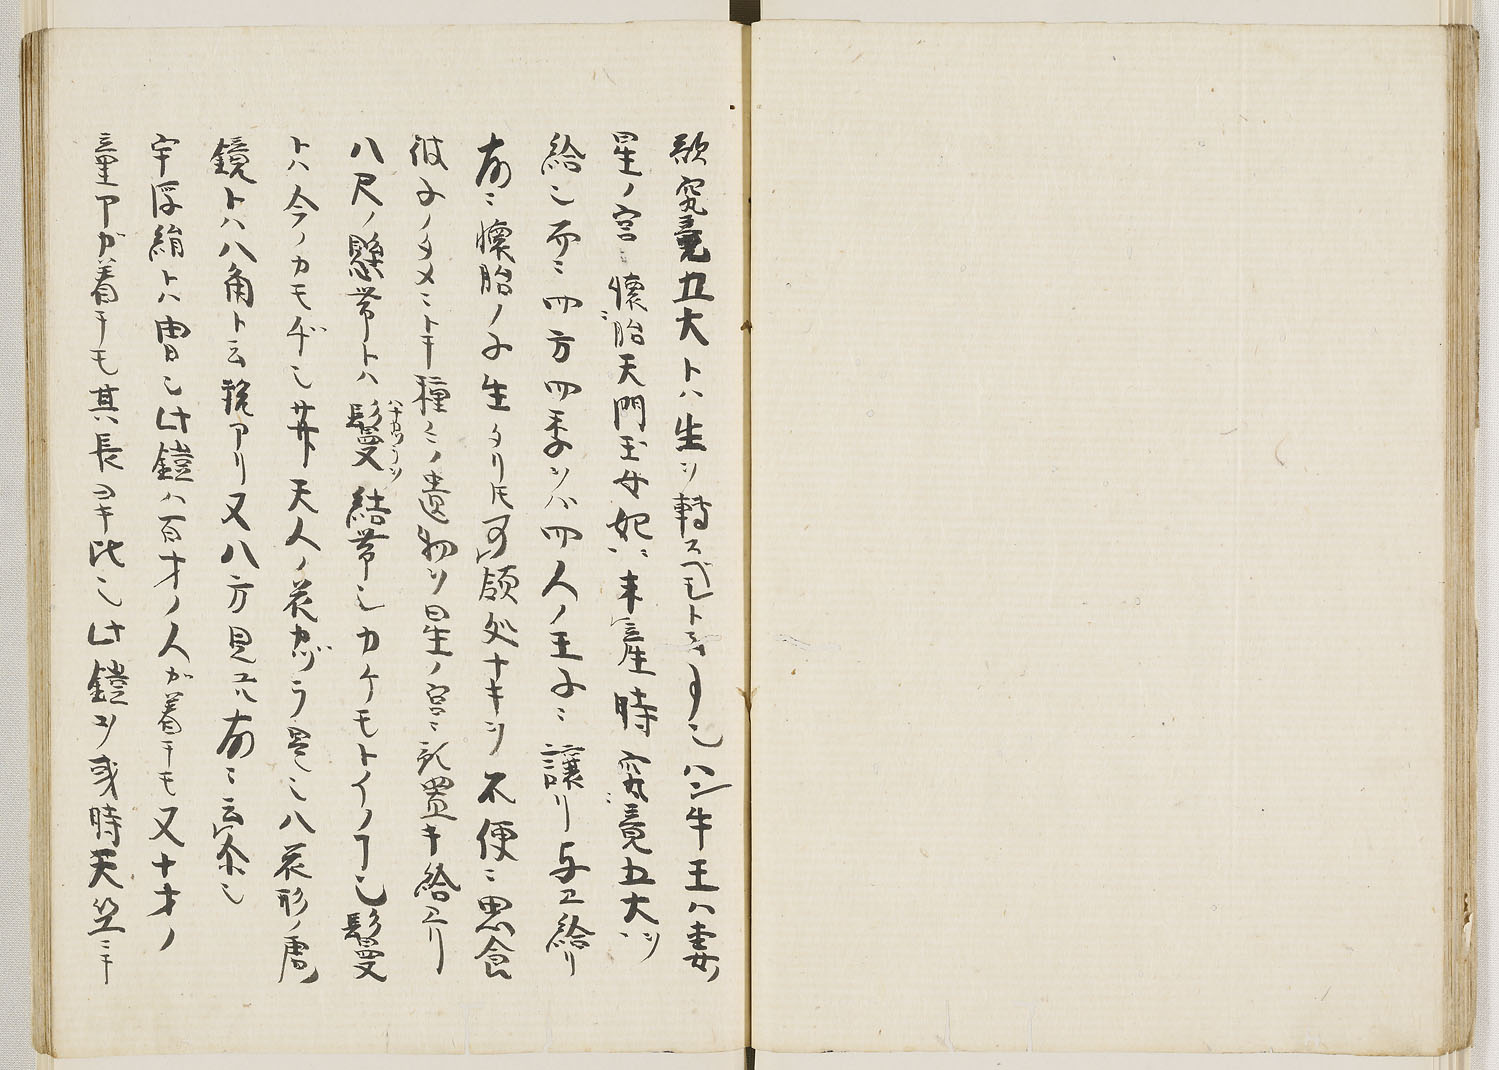 歌究竟五大トハ生ヲ轉スベモトヲ云也ハン牛王ハ妻
星ノ宮ニ懐胎天門玉女妃ニ未産時究竟五大ヲ
給也而ニ四方四季ヲハ四人ノ王子ニ譲リ与エ給リ
爰ニ懐胎ノ子生タリ𪜈可領処ナキヲ不便ニ思食
彼子ノタメニトテ種々ノ遺物ヲ星ノ宮ニ記置キ給ヘリ
八尺ノ懸帯トハ鬘結帯也カケモトイノ事也鬘
トハ今ノカモヂ也𦬇天人ノ花カヅラ是也八花形ノ唐
鏡トハ八角ト云説アリ又八方見ユル爰ニ云家也
宇浮絹トハ冑也此鎧ハ百才ノ人ガ着テモ又十才ノ
童アガ着テモ其長ヨキ比也此鎧ヨリ或時天竺ニテ